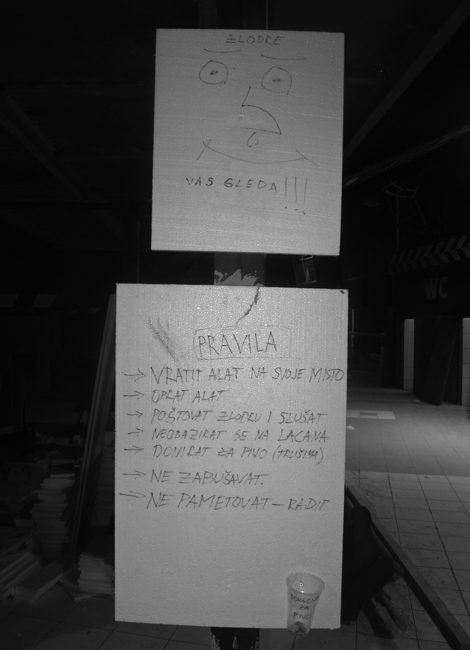 ZLODRE
VAS GLEDA!!!
WC
PRAVILA
→ VRATIT ALAT NA SVOJE MISTO
→ OPRAT ALAT
→ POŠTOVAT ZLODRU I SLUŠAT
→ NEOBAZIRAT SE NA LACANA
→ DONIRAT ZA PIVO (TRUSINA)
→ NE ZABUŠAVAT.
→ NE PAMETOVAT – RADIT
ZA
PIVO